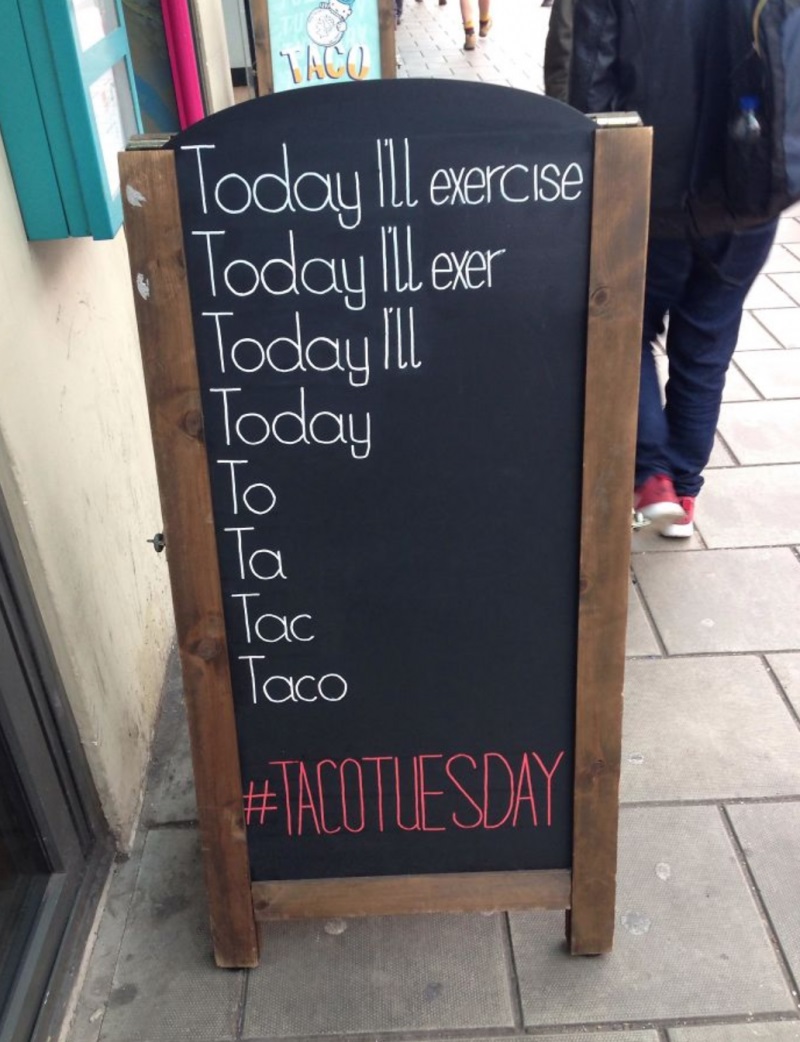 TACO
Today I'll exercise
Today I'll exer
Today I'll
Today
To
Ta
Tac
Taco
#TACOTUESDAY